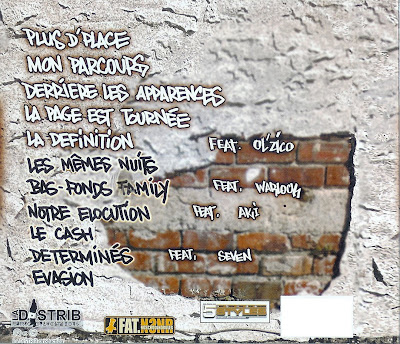 PLUS D'PLACE
MON PARCOURS
DERRIERE LES APPARENCES
LA PAGE EST TOURNÉE
LA DEFINITION FEAT. OL'ZICO
LES MÊMES NUITS
BAS-FONDS FAMILY FEAT. WARLOCK
NOTRE ELOCUTION FEAT. AKI
LE CASH
DETERMINÉS FEAT. SEVEN
EVASION
DISTRIB
#FAT.H3NR
5STYLES